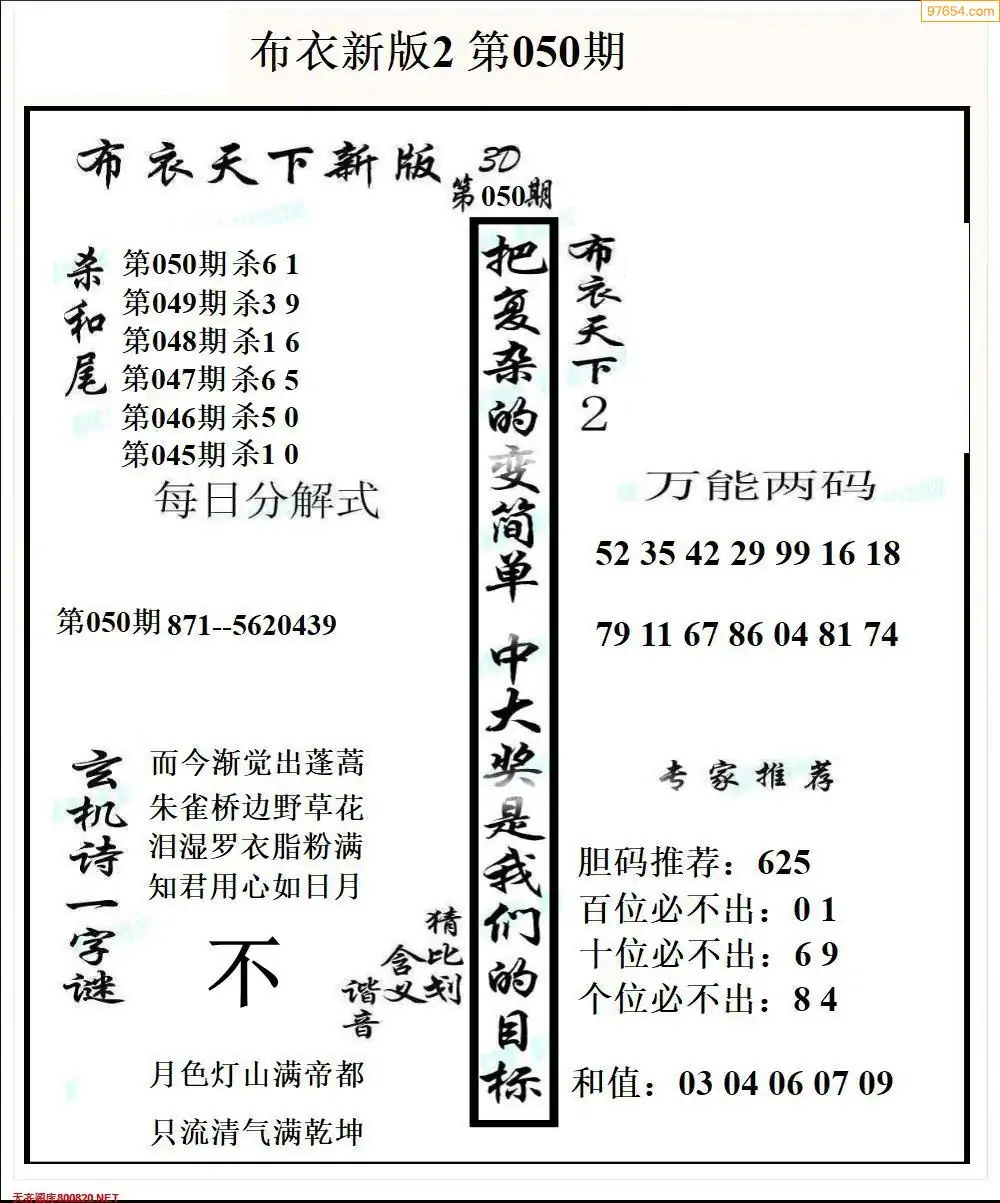 97654.com
布衣新版2 第050期
布衣天下新版 3D
第050期
杀和尾
第050期杀6 1
第049期杀3 9
第048期杀1 6
第047期杀6 5
第046期杀5 0
第045期杀1 0
每日分解式
第050期 871--5620439
玄机诗一字谜
而今渐觉出蓬蒿
朱雀桥边野草花
泪湿罗衣脂粉满
知君用心如日月
不
猜比划
含义
谐音
月色灯山满帝都
只流清气满乾坤
把复杂的变简单 中大奖是我们的目标
布衣天下2
万能两码
52 35 42 29 99 16 18
79 11 67 86 04 81 74
专家推荐
胆码推荐：625
百位必不出：0 1
十位必不出：6 9
个位必不出：8 4
和值：03 04 06 07 09
800820.NET